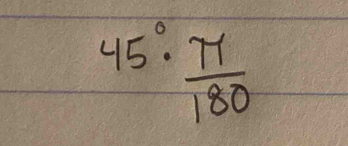 45° · π/180